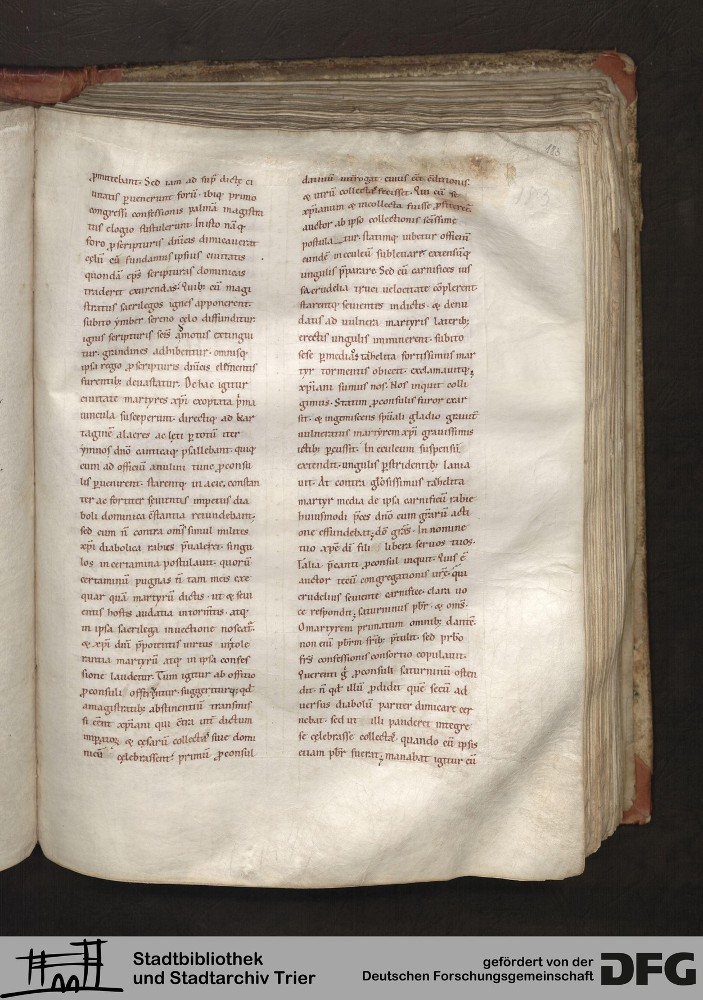 183
p̱mittebant. Sed iam ad sup̱ dictę ci
uitatis p̱uenerunt forū. ibiq; primo
congressi confessionis palmā magistra
tus elogio sustulerunt. In isto nāq;
foro p̱ scripturis dn̄icis dimicauerat
cęlū cū fundanus ipsius ciuitatis
quondā ep̄s scripturas dominicas
traderet exurendas. Quib; cū magi
stratus sacrilegos ignes apponerent
subito ymber sereno cęlo diffunditur.
ignis scripturis sc̄is admotus extingui
tur. grandines adhibentur. omnisq;
ipsa regio p̱ scripturis dn̄icis elem̄entis
furentib; deuastatur. De hac igitur
ciuitate martyres xp̄i exoptata p̄ma
uincula susceperunt. directiq; ad kar
taginē alacres ac lęti p̱ totū iter
ymnos dn̄o canticaq; psallebant. qui
cum ad officiū anulini tunc p̱consu
lis p̱uenirent. starentq; in acie constan
ter ac fortiter seuientis impetus dia
boli dominica c̄stantia retundebant.
sed cum n̄ contra om̄s simul milites
xp̄i diabolica rabies p̄ualeret. singu
los in certamina postulauit. quorū
certaminū pugnas n̄ tam meis exe
quar quā martyrū dictis. ut & seui
entis hostis audatia in tormtis. atq;
in ipsa sacrilega inuectione noscat̄.
& xp̄i dn̄i p̄potentis uirtus in tole
rantia martyrū atq; in ipsa confes
sione laudetur. Tum igitur ab offitio
p̱consuli offerrentur. suggeriturq; qd̄
a magistratib; absentinū transmis
si cēnt xp̄iani qui c̄tra int̄ dictum
imp̱atoꝝ & cęsarū collectā siue domi
nicū cęlebrassent. primū p̱consul
datiuū int̄rogat. cuius cēt c̄ditionis.
& utrū collectā fecisset. Qui cū se
xp̄ianum & in collecta fuisse p̱fiteret̄.
auctor ab ipso collectionis sc̄issime
postulatur. statimq; iubetur officiū
eundē in eculeū subleuare. extensūq;
ungulis p̄parare. Sed cū carnifices ius
sa crudelia truci uelocitate cōplerent.
starentq; seuientes in dictis. & denu
datis ad uulnera martyris laterib;
erectis ungulis imminerent. subito
sese p̱ mediā tabelita fortissimus mar
tyr tormentis obiecit. exclamauitq;
xp̄iani sumus nos. Nos inquit colli
gimus. Statim p̱consulis furor exar
sit. & ingemiscens spūali gladio grauit̄
uulneratus martyrem xp̄i grauissimis
ictib; p̱cussit. In eculeum suspensū
extendit. ungulis p̱stridentib; lania
uit. At contra glōsissimus tabelita
martyr media de ipsa carnificū rabie
huiusmodi p̄ces dn̄o cum gr̄arū acti
one effundebat. dō gr̄as. In nomine
tuo xp̄e dī fili libera seruos tuos.
Talia p̄canti p̱consul inquit. Quis ē
auctor tecū congregationis ur̄e. qui
crudelius seuiente carnifice. clara uo
ce respondit. saturninus pb̄r. & om̄s.
O martyrem primatum omnib; dantē.
non enī pb̄rm fr̄ib; p̄tulit. sed pr̄bo
fr̄s confessionis consortio copulauit.
Querenti g̊ p̱consuli saturninū osten
dit. n̄ qd̄ illū p̱didit quē secū ad
uersus diabolū pariter dimicare cer
nebat. sed ut illi panderet integre
se cęlebrasse collectā. quando cū ipsis
etiam pb̄r fuerat. manabat igitur cū
Stadtbibliothek
und Stadtarchiv Trier
gefördert von der
Deutschen Forschungsgemeinschaft
DFG